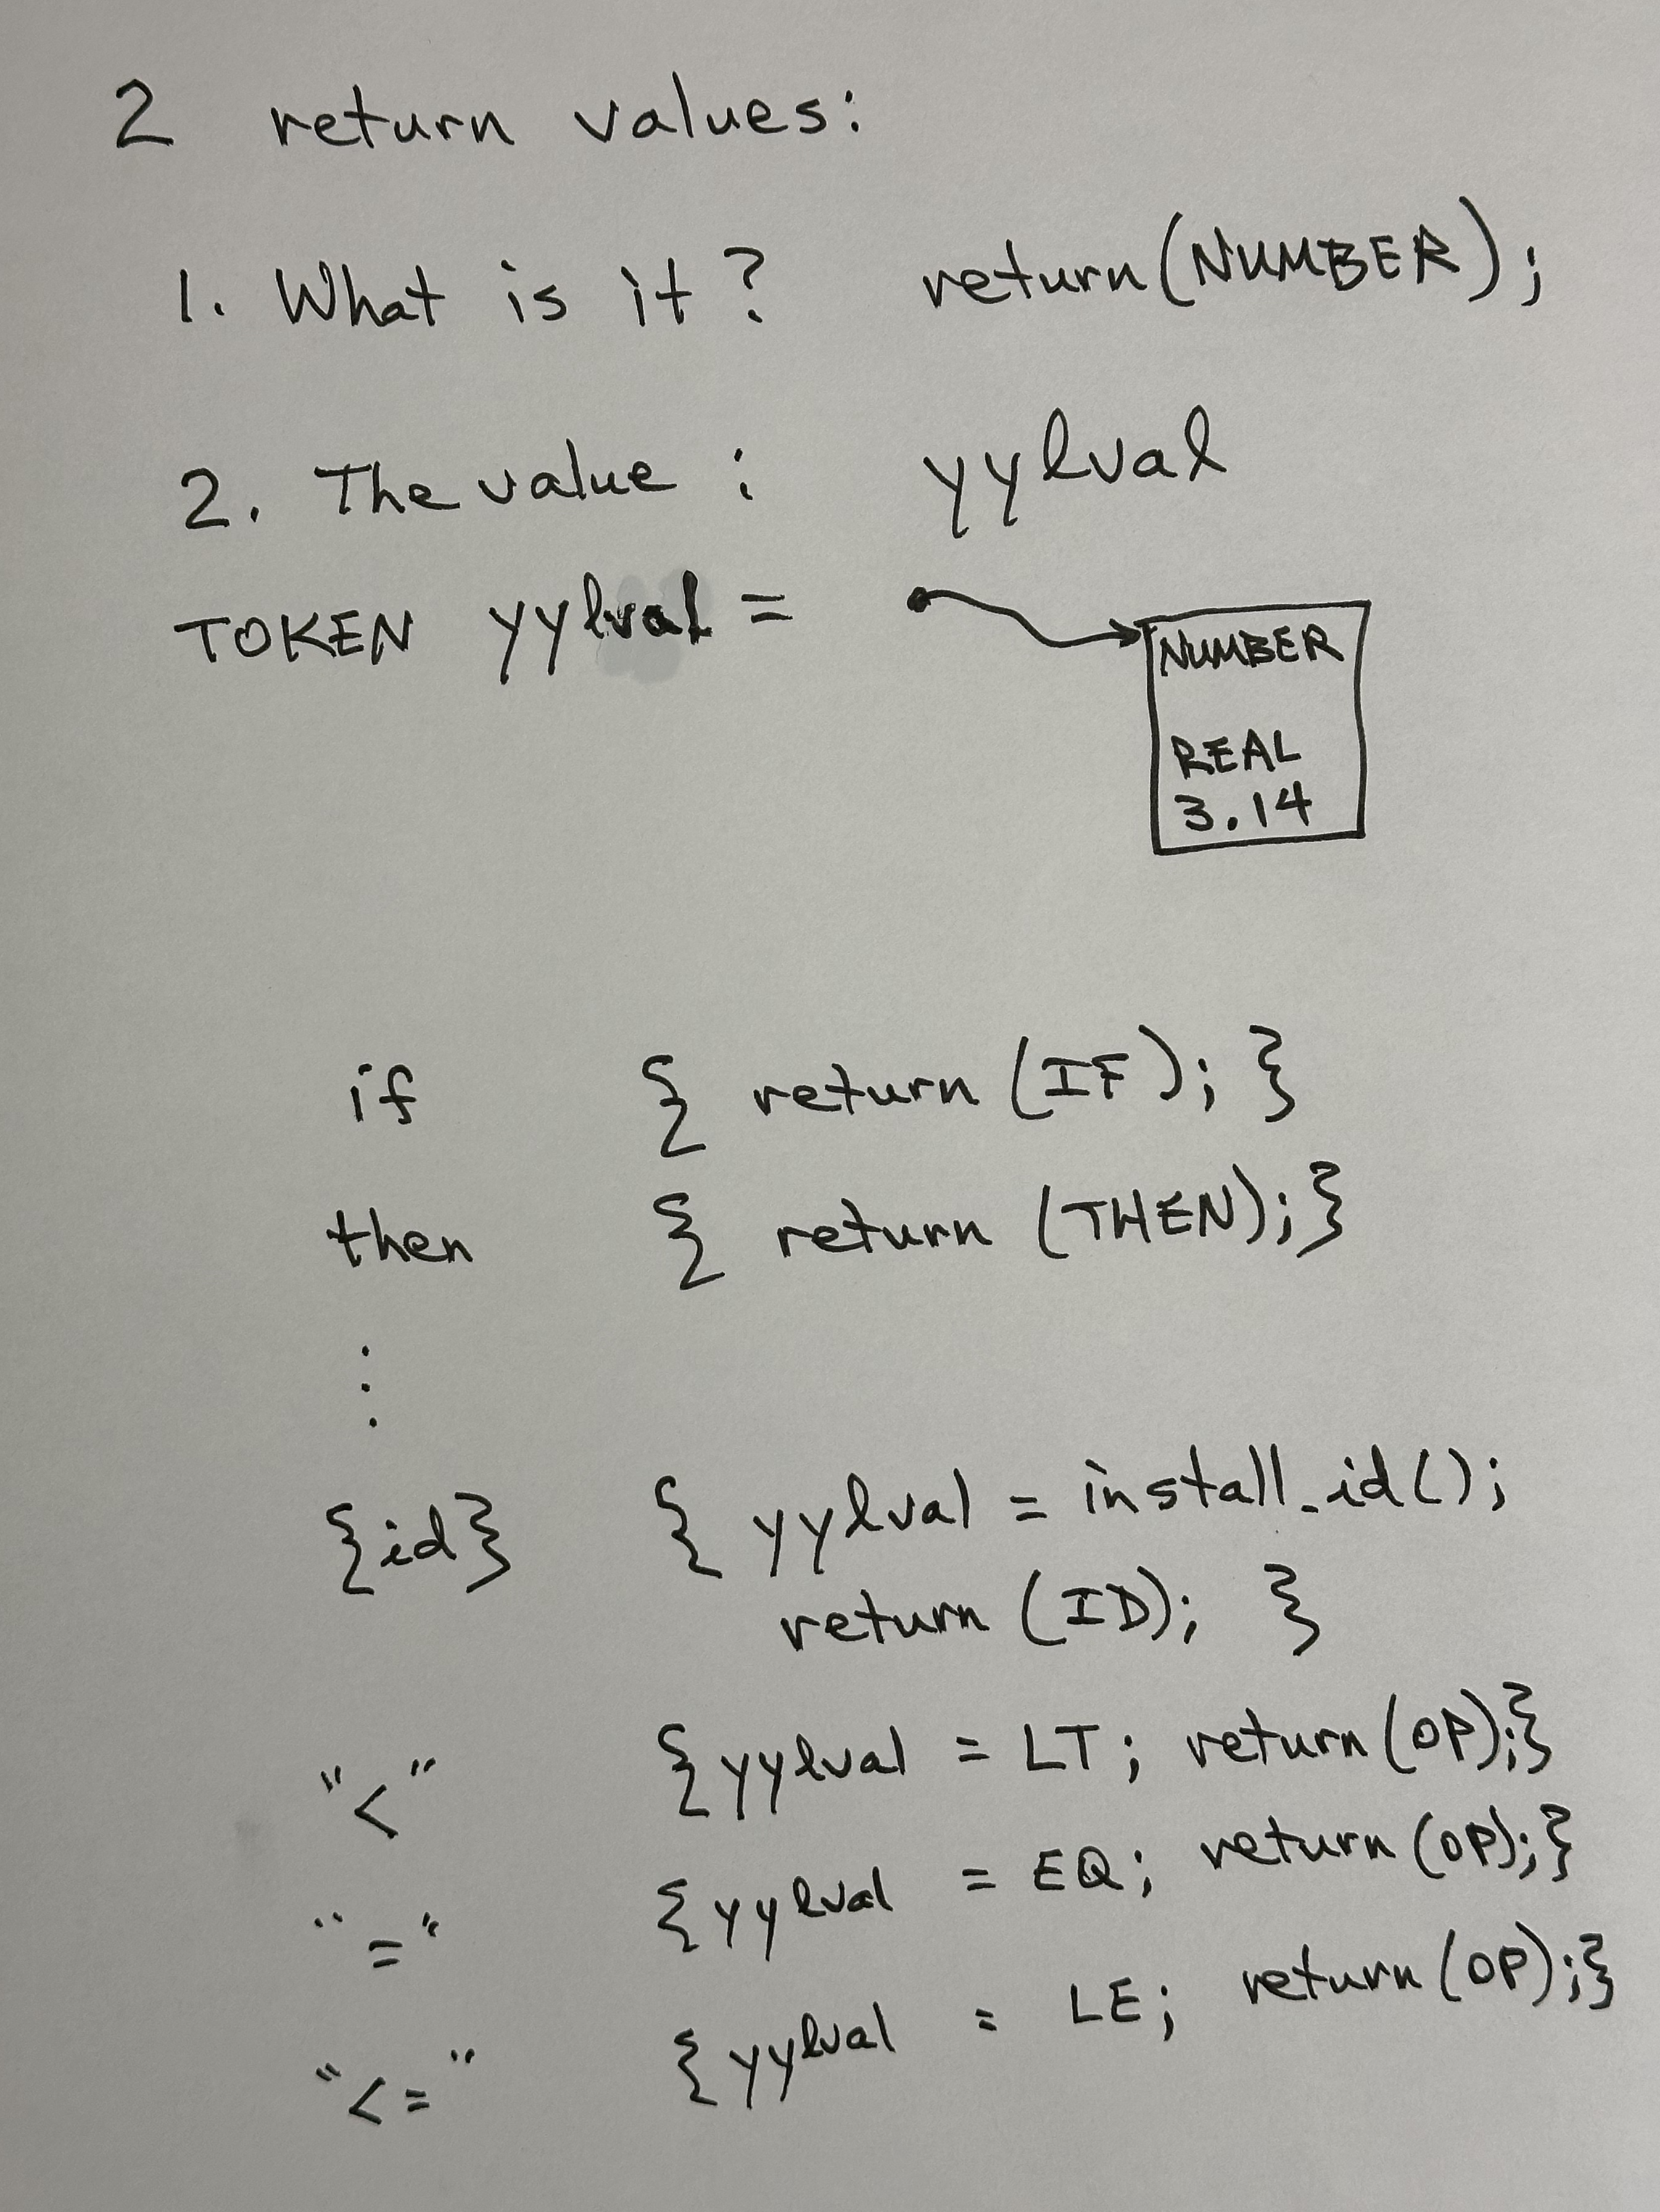 2 return values:
1. What is it? return(NUMBER);
2. The value: yylval
TOKEN yylval =
NUMBER
REAL
3.14
if { return (IF); }
then { return (THEN);}
:
{id} { yylval = install_id();
return (ID); }
"<" {yylval = LT; return(OP);}
"=" {yylval = EQ; return(OP);}
"<=" {yylval = LE; return(OP);}